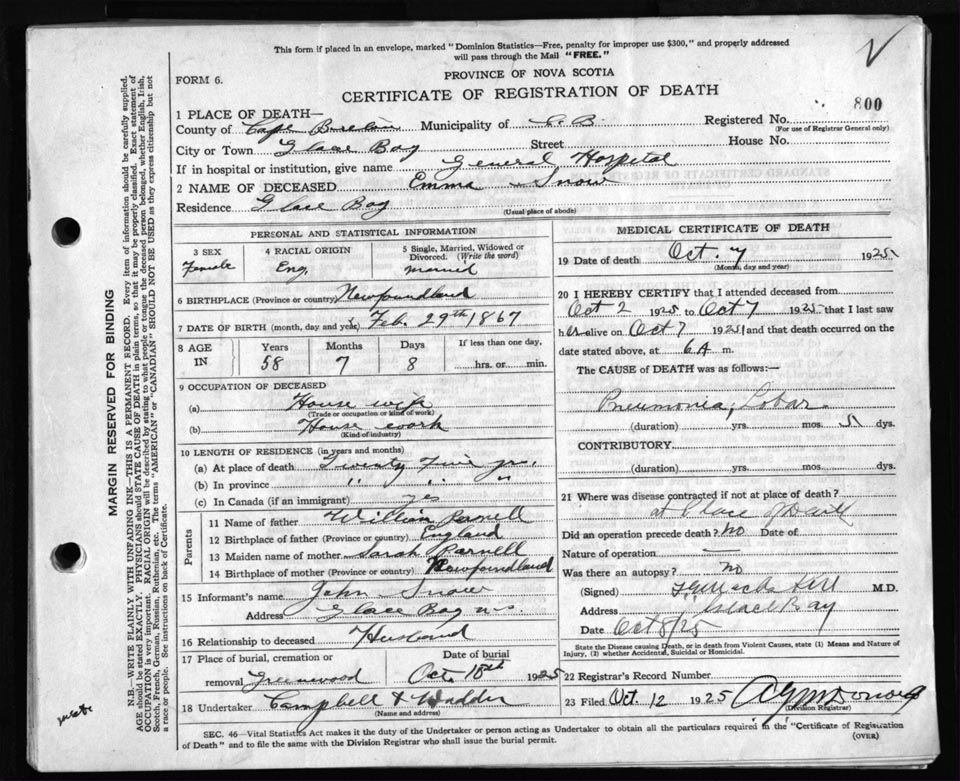 This form if placed in an envelope, marked "Dominion Statistics—Free, penalty for improper use $300," and properly addressed
will pass through the Mail "FREE."
FORM 6.
PROVINCE OF NOVA SCOTIA
CERTIFICATE OF REGISTRATION OF DEATH
800
1 PLACE OF DEATH—
Registered No.
(For use of Registrar General only)
County of Cape Breton Municipality of C.B.
City or Town Glace Bay Street House No.
If in hospital or institution, give name General Hospital
2 NAME OF DECEASED Emma Snow
Residence Glace Bay
(Usual place of abode)
PERSONAL AND STATISTICAL INFORMATION
3 SEX 4 RACIAL ORIGIN 5 Single, Married, Widowed or
Divorced. (Write the word)
Female Eng. married
6 BIRTHPLACE (Province or country) Newfoundland
7 DATE OF BIRTH (month, day and year) Feb. 29th 1867
8 AGE IN Years Months Days If less than one day,
58 7 8 hrs. or min.
9 OCCUPATION OF DECEASED
(a) House wife
(Trade or occupation or kind of work)
(b) House work
(Kind of industry)
10 LENGTH OF RESIDENCE (in years and months)
(a) At place of death Twenty Five yrs.
(b) In province " " "
(c) In Canada (if an immigrant) yes
Parents
11 Name of father William Parnell
12 Birthplace of father (Province or country) England
13 Maiden name of mother Sarah Parnell
14 Birthplace of mother (Province or country) Newfoundland
15 Informant's name John Snow
Address Glace Bay N.S.
16 Relationship to deceased Husband
17 Place of burial, cremation or Date of burial
removal Greenwood Oct. 1925
18 Undertaker Campbell &
(Name and address)
MEDICAL CERTIFICATE OF DEATH
19 Date of death Oct. 7 1925
(Month, day and year)
20 I HEREBY CERTIFY that I attended deceased from
Oct 2 1925 to Oct 7 1925 that I last saw
her alive on Oct 7 1925 and that death occurred on the
date stated above, at 6 A m.
The CAUSE of DEATH was as follows:—
Pneumonia, Lobar
(duration) yrs. mos. 5 dys.
CONTRIBUTORY.
(duration) yrs. mos. dys.
21 Where was disease contracted if not at place of death?
at Place of Death
Did an operation precede death? No Date of
Nature of operation —
Was there an autopsy? No
(Signed) M.D.
Address Glace Bay
Date Oct 8/25
State the Disease causing Death, or in death from Violent Causes, state (1) Means and Nature of
Injury, (2) whether Accidental, Suicidal or Homicidal.
22 Registrar's Record Number
23 Filed Oct 12 1925
(Division Registrar)
SEC. 46—Vital Statistics Act makes it the duty of the Undertaker or person acting as Undertaker to obtain all the particulars required in the "Certificate of Registration
of Death" and to file the same with the Division Registrar who shall issue the burial permit.
(OVER)
MARGIN RESERVED FOR BINDING
N.B.—WRITE PLAINLY WITH UNFADING INK—THIS IS A PERMANENT RECORD. Every item of information should be carefully supplied.
AGE should be stated EXACTLY. PHYSICIANS should STATE CAUSE OF DEATH in plain terms, so that it may be properly classified. Exact statement of
OCCUPATION is very important. RACIAL ORIGIN will be described by stating to what people or tongue the deceased person belonged, whether English, Irish,
Scotch, French, German, Russian, Ruthenian, etc. The terms "AMERICAN" or "CANADIAN" SHOULD NOT BE USED as they express citizenship but not
a race or people. See instructions on back of Certificate.